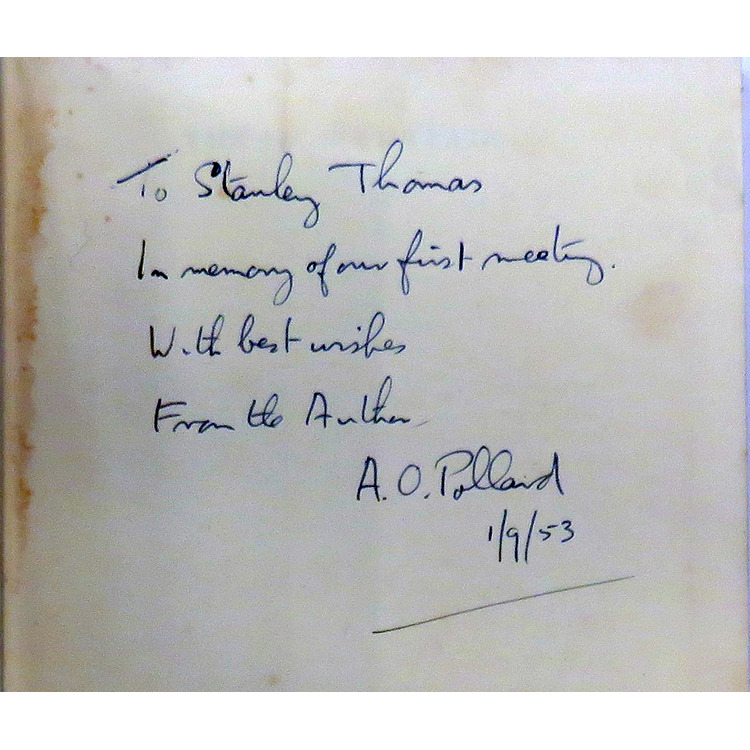 To Stanley Thomas
In memory of our first meeting.
With best wishes
From the Author
A. O. Pollard
1/9/53